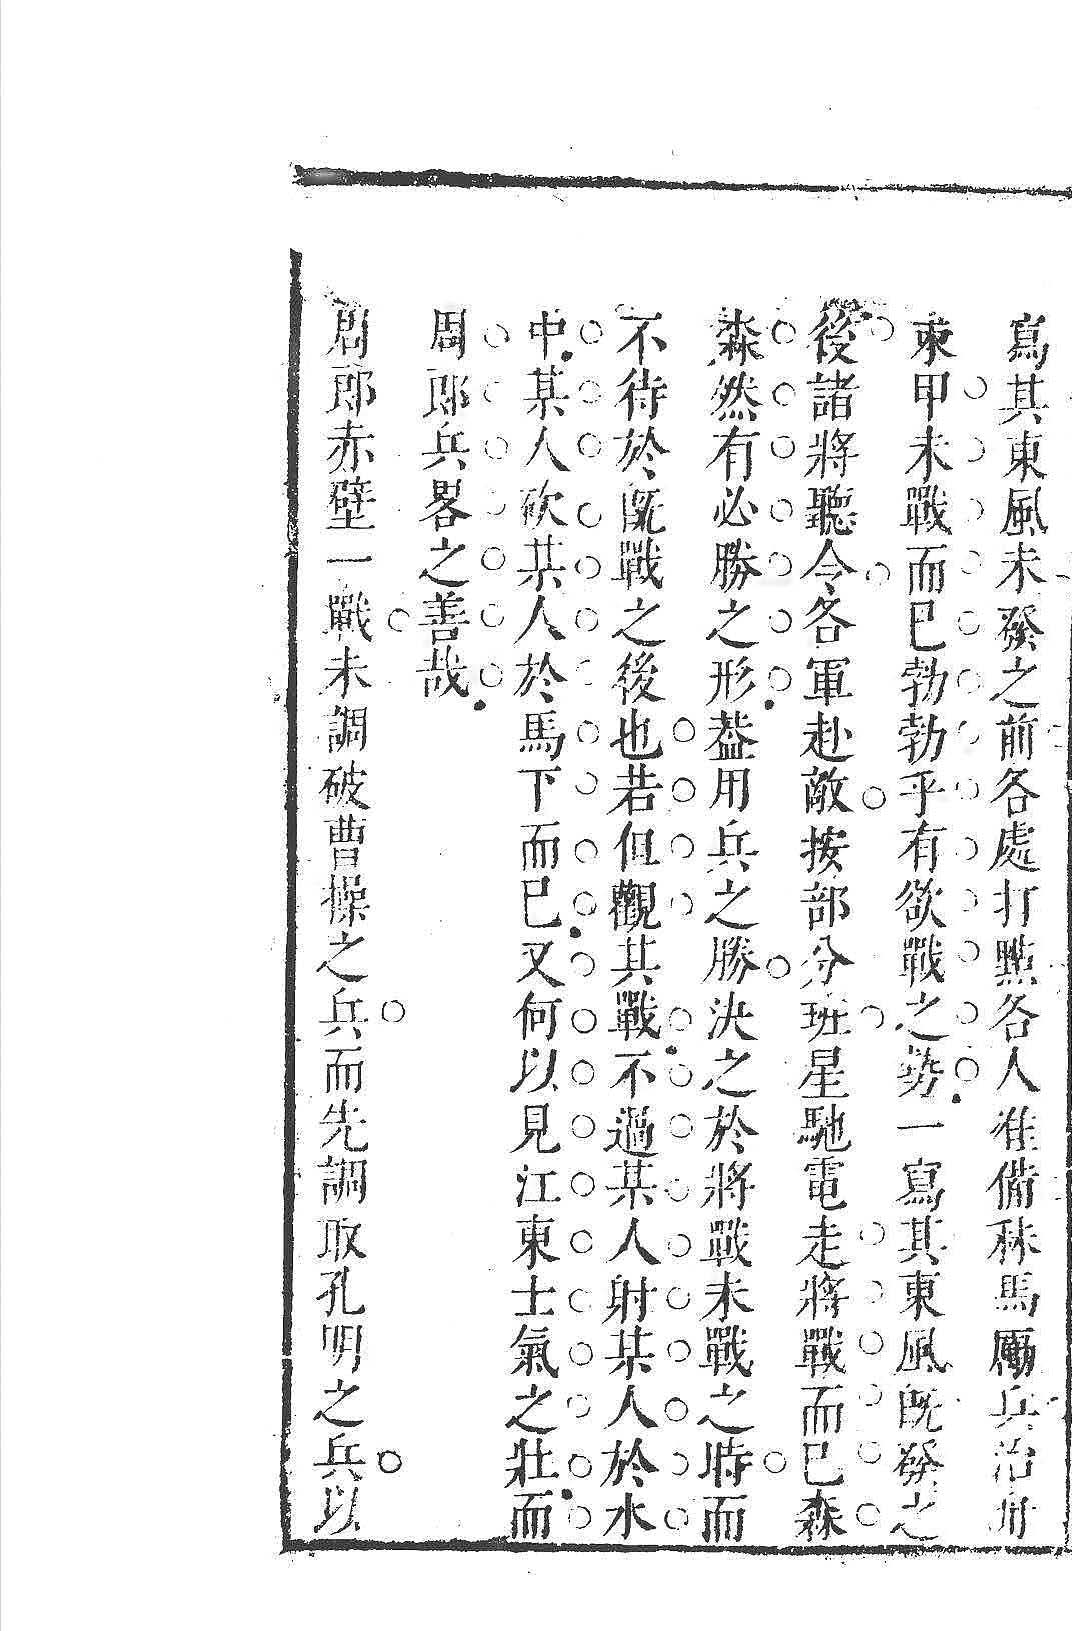 寫其東風未發之前各處打點各人准備秣馬厲兵治舟
束甲未戰而已勃勃乎有欲戰之勢一寫其東風旣發之
後諸將聽令各軍赴敵按部分班星馳電走將戰而已森
森然有必勝之形葢用兵之勝決之於將戰未戰之時而
不待於旣戰之後也若但觀其戰不過某人射某人於水
中某人砍某人於馬下而已又何以見江東士氣之壯而
周郎兵畧之善哉
周郎赤壁一戰未調破曹操之兵而先調取孔明之兵以